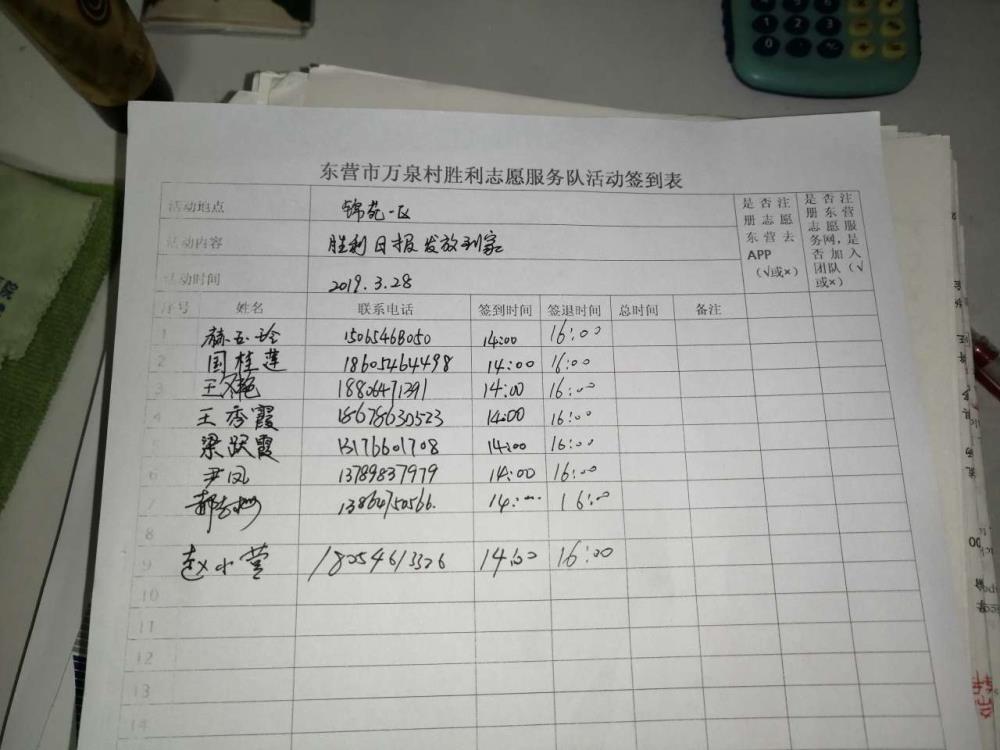 东营市万泉村胜利志愿服务队活动签到表
活动地点 锦苑一区
活动内容 胜利日报发放到家
活动时间 2019.3.28
是否注册志愿东营去APP(√或×)
是否注册东营志愿服务网,是否加入团队(√或×)
序号 姓名 联系电话 签到时间 签退时间 总时间 备注
1 15065468050 14:00 16:00
2 国桂莲 18605464498 14:00 16:00
3 王艳 18806471391 14:00 16:00
4 王秀霞 18678630523 14:00 16:00
5 梁跃霞 13176601708 14:00 16:00
6 尹凤 13789837979 14:00 16:00
7 13864750566. 14:00 16:00
8
9 赵小莹 18054613326 14:00 16:00
10
11
12
13
14